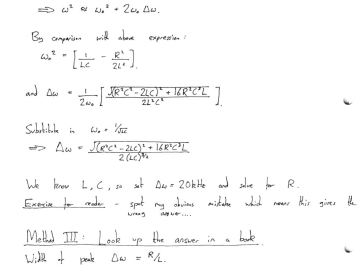 ⟹ ω² ≈ ω₀² + 2ω₀ Δω.
By comparison with above expression:
ω₀² = [ 1/LC - R²/2L² ].
and Δω = 1/2ω₀ [ √((R²C² - 2LC)² + 16R²C³L) / 2L²C² ].
Substitute in ω₀ = 1/√LC
⟹ Δω = √((R²C² - 2LC)² + 16R²C³L) / 2(LC)^3/2
We know L, C, so set Δω = 20kHz and solve for R.
Exercise for reader - spot my obvious mistake which means this gives the
wrong answer....
Method III: Look up the answer in a book.
Width of peak Δω = R/L.